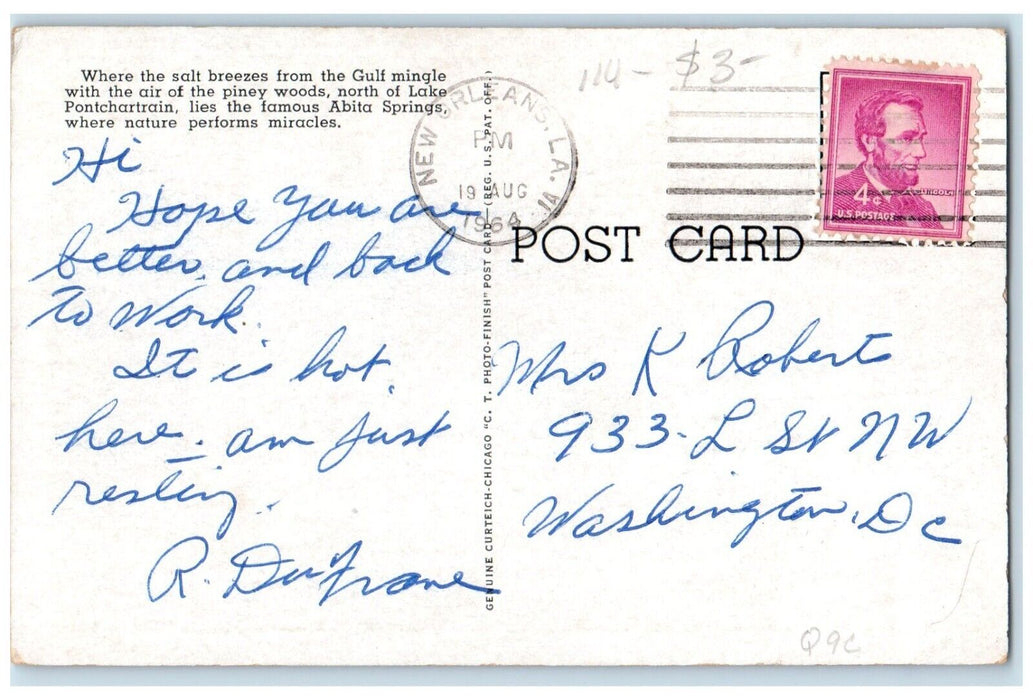 Where the salt breezes from the Gulf mingle
with the air of the piney woods, north of Lake
Pontchartrain, lies the famous Abita Springs,
where nature performs miracles.
Hi
Hope you are
better, and back
to work.
It is hot
here - am just
resting.
R. Dufrane
GENUINE CURTEICH-CHICAGO "C. T. PHOTO-FINISH" POST CARD (REG. U.S. PAT. OFF.)
NEW ORLEANS, LA.
PM
19 AUG
1964
114 - $3-
LINCOLN
4¢
U.S. POSTAGE
POST CARD
Mrs K Robert
933 - L St NW
Washington, Dc
Q9C